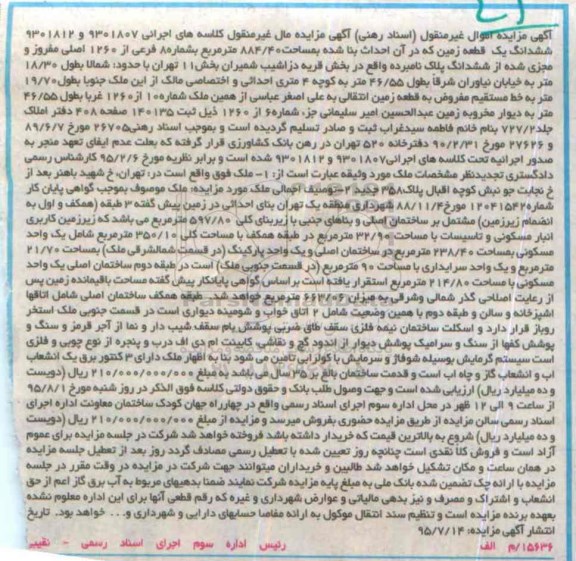 آگهی مزایده اموال غیرمنقول (اسناد رهنی) آگهی مزایده مال غیرمنقول کلاسه های اجرائی ۹۳۰۱۸۰۷ و ۹۳۰۱۸۱۲
ششدانگ یک قطعه زمین که در آن احداث بنا شده بمساحت۸۸۴/۴۰ مترمربع بشماره۸ فرعی از ۱۲۶۰ اصلی مفروز و
مجزی شده از ششدانگ پلاک نامبرده واقع در بخش قریه دزاشیب شمیران بخش۱۱ تهران با حدود: شمالا بطول ۱۸/۳۰
متر به خیابان نیاوران شرقاً بطول ۴۶/۵۵ متر به کوچه ۴ متری احداثی و اختصاصی مالک از این ملک جنوبا بطول۱۹/۷۰
متر به خط مستقیم مفروض به قطعه زمین انتقالی به علی اصغر عباسی از همین ملک شماره۱۰ از۱۲۶۰ غربا بطول ۴۶/۵۵
متر به دیوار مخروبه زمین عبدالحسین امیر سلیمانی جز، شماره۶ از ۱۲۶۰ ذیل ثبت ۱۴۰۱۳۵ صفحه ۴۰۸ دفتر املاک
جلد۷۲۷/۲ بنام خانم فاطمه سیدغراب ثبت و صادر تسلیم گردیده است و بموجب اسناد رهنی۲۶۷۰۵ مورخ ۸۹/۶/۷
و ۲۷۶۲۶ مورخ ۹۰/۲/۳۱ دفترخانه ۵۲۰ تهران در رهن بانک کشاورزی قرار گرفته که بعلت عدم ایفای تعهد منجر به
صدور اجرائیه تحت کلاسه های اجرائی۹۳۰۱۸۰۷ و ۹۳۰۱۸۱۲ شده است و برابر نظریه مورخ ۹۵/۲/۶ کارشناس رسمی
دادگستری تجدیدنظر مشخصات ملک مورد وثیقه عبارت است از: ۱- ملک فوق واقع است در: تهران، خ شهید باهنر بعد از
خ نجابت جو نبش کوچه اقبال پلاک۳۵۸ جدید ۲-توصیف اجمالی ملک مورد مزایده: ملک موصوف بموجب گواهی پایان کار
شماره۱۲۰۴۱۵۴۲ مورخ۸۸/۱۱/۴ شهرداری منطقه یک تهران بنای احداثی در زمین پیش گفته ۳ طبقه (همکف و اول به
انضمام زیرزمین) مشتمل بر ساختمان اصلی و بناهای جنبی با زیربنای کلی ۵۹۷/۸۰ مترمربع می باشد که زیرزمین کاربری
انبار مسکونی و تاسیسات با مساحت ۳۲/۹۰ مترمربع در طبقه همکف با مساحت کلی ۳۵۰/۱۰ مترمربع شامل یک واحد
مسکونی بمساحت ۲۳۸/۴۰ مترمربع در ساختمان اصلی و یک واحد پارکینگ (در قسمت شمالشرقی ملک) بمساحت ۲۱/۷۰
مترمربع و یک واحد سرایداری با مساحت ۹۰ مترمربع (در قسمت جنوبی ملک) است در طبقه دوم ساختمان اصلی یک واحد
مسکونی با مساحت ۲۱۴/۸۰ مترمربع استقرار یافته است براساس گواهی پایانکار پیش گفته مساحت باقیمانده زمین پس
از رعایت اصلاحی گذر شمالی وشرقی به میزان ۶۶۲/۰۲ مترمربع خواهد شد. طبقه همکف ساختمان اصلی شامل اتاقها
اشپزخانه و سالن و طبقه دوم با همین وضعیت شامل ۲ اتاق خواب و شومینه دیواری است در قسمت جنوبی ملک استخر
روباز قرار دارد و اسکلت ساختمان نیمه فلزی سقف طاق ضربی پوشش بام سقف شیب دار و نما از آجر قرمز و سنگ و
پوشش کفها از سنگ و سرامیک پوشش دیوار از اندود گچ و نقاشی، کابینت ام دی اف درب و پنجره از نوع چوبی و فلزی
است سیستم گرمایش بوسیله شوفاژ و سرمایش با کولرابی تامین می شود بنا به اظهار ملک دارای ۳ کنتور برق یک انشعاب
اب و انشعاب گاز و چاه اب است و قدمت ساختمان بالغ بر ۳۵ سال می باشد به مبلغ ۲۱۰/۰۰۰/۰۰۰/۰۰۰ ریال (دویست
و ده میلیارد ریال) ارزیابی شده است و جهت وصول طلب بانک و حقوق دولتی کلاسه فوق الذکر در روز شنبه مورخ ۹۵/۸/۱
از ساعت ۹ الی ۱۲ ظهر در محل اداره سوم اجرای اسناد رسمی واقع در چهارراه جهان کودک ساختمان معاونت اداره اجرای
اسناد رسمی سالن مزایده از طریق مزایده حضوری بفروش میرسد و مزایده از مبلغ ۲۱۰/۰۰۰/۰۰۰/۰۰۰ ریال (دویست
و ده میلیارد ریال) شروع به بالاترین قیمت که خریدار داشته باشد فروخته خواهد شد شرکت در جلسه مزایده برای عموم
آزاد است و فروش کلا نقدی است چنانچه روز تعیین شده با تعطیل رسمی مصادف گردد روز بعد از تعطیل جلسه مزایده
در همان ساعت و مکان تشکیل خواهد شد طالبین و خریداران میتوانند جهت شرکت در مزایده در وقت مقرر در جلسه
مزایده با ارائه چک تضمین شده بانک ملی به مبلغ پایه مزایده شرکت نمایند ضمنا بدهیهای مربوط به آب برق گاز اعم از حق
انشعاب و اشتراک و مصرف و نیز بدهی مالیاتی و عوارض شهرداری و غیره که رقم قطعی آنها برای این اداره معلوم نشده
بعهده برنده مزایده است و تنظیم سند انتقال موکول به ارائه مفاصا حسابهای دارایی و شهرداری و... خواهد بود. تاریخ
انتشار آگهی مزایده: ۹۵/۷/۱۴
۱۵۶۳۶/م الف رئیس اداره سوم اجرای اسناد رسمی - نقیبی